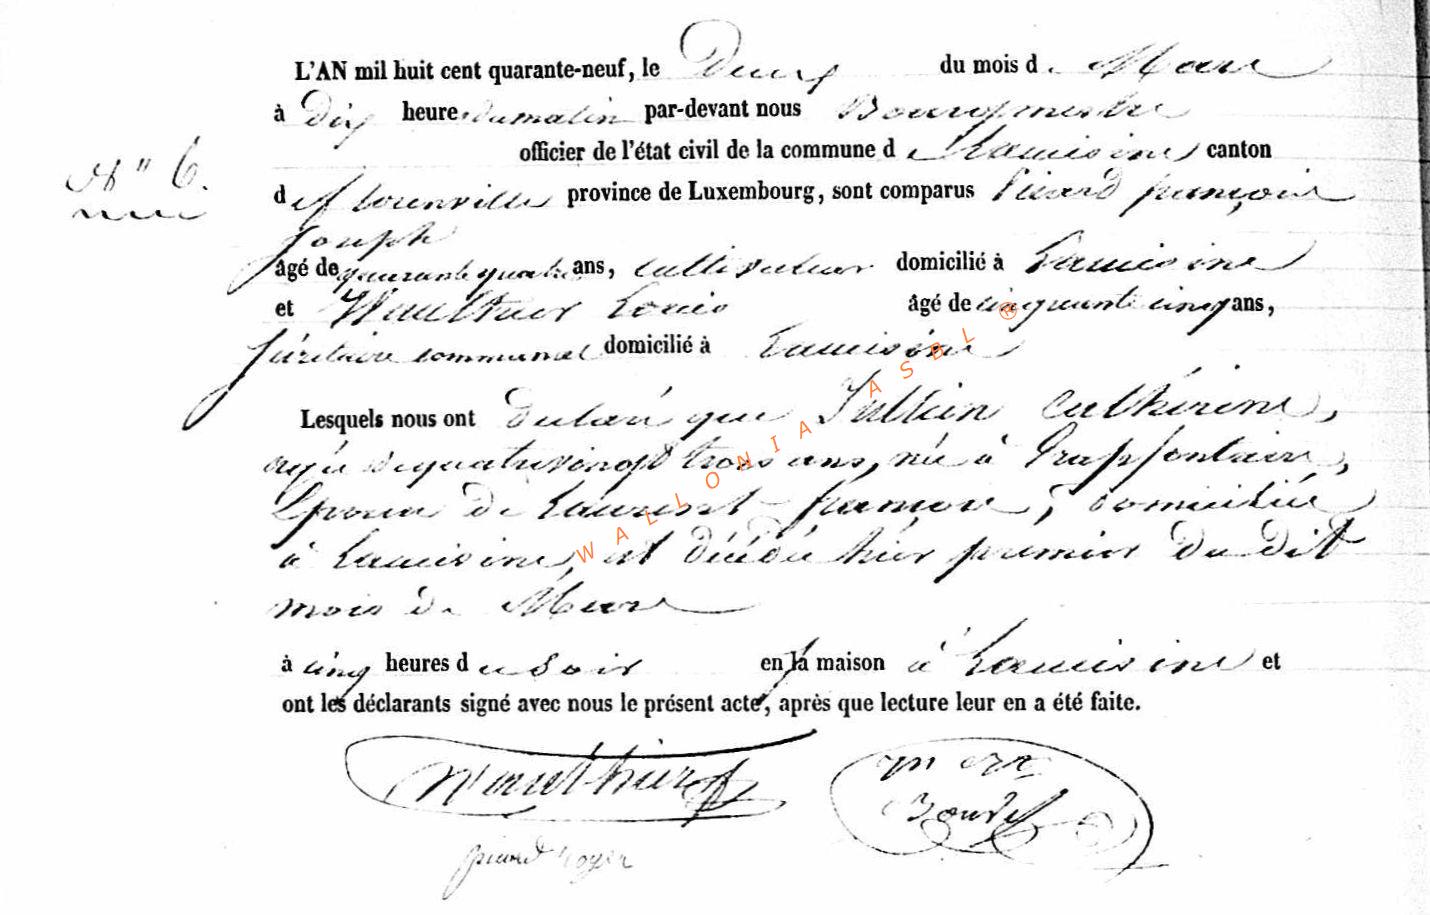 L'AN mil huit cent quarante-neuf, le Deux du mois de Mars
à Dix heures du matin par-devant nous Bourgmestre
officier de l'état civil de la commune de Lacuisine canton
N° 6.
de florenville province de Luxembourg, sont comparus Picard françois
Joseph
âgé de quarante quatre ans, cultivateur domicilié à Lacuisine
et Wauthier Louis âgé de cinquante cinq ans,
sécrétaire communal domicilié à Lacuisine
Lesquels nous ont declaré que Catherine,
agée de quatre vingt trois ans, née à Grapfontaine,
Epouse de Laurent, domiciliée
à Lacuisine, est décédée hier premier du dit
mois de Mars
à cinq heures du soir en sa maison à Lacuisine et
ont les déclarants signé avec nous le présent acte, après que lecture leur en a été faite.
Wauthier
picard
WALLONIA ASBL ®